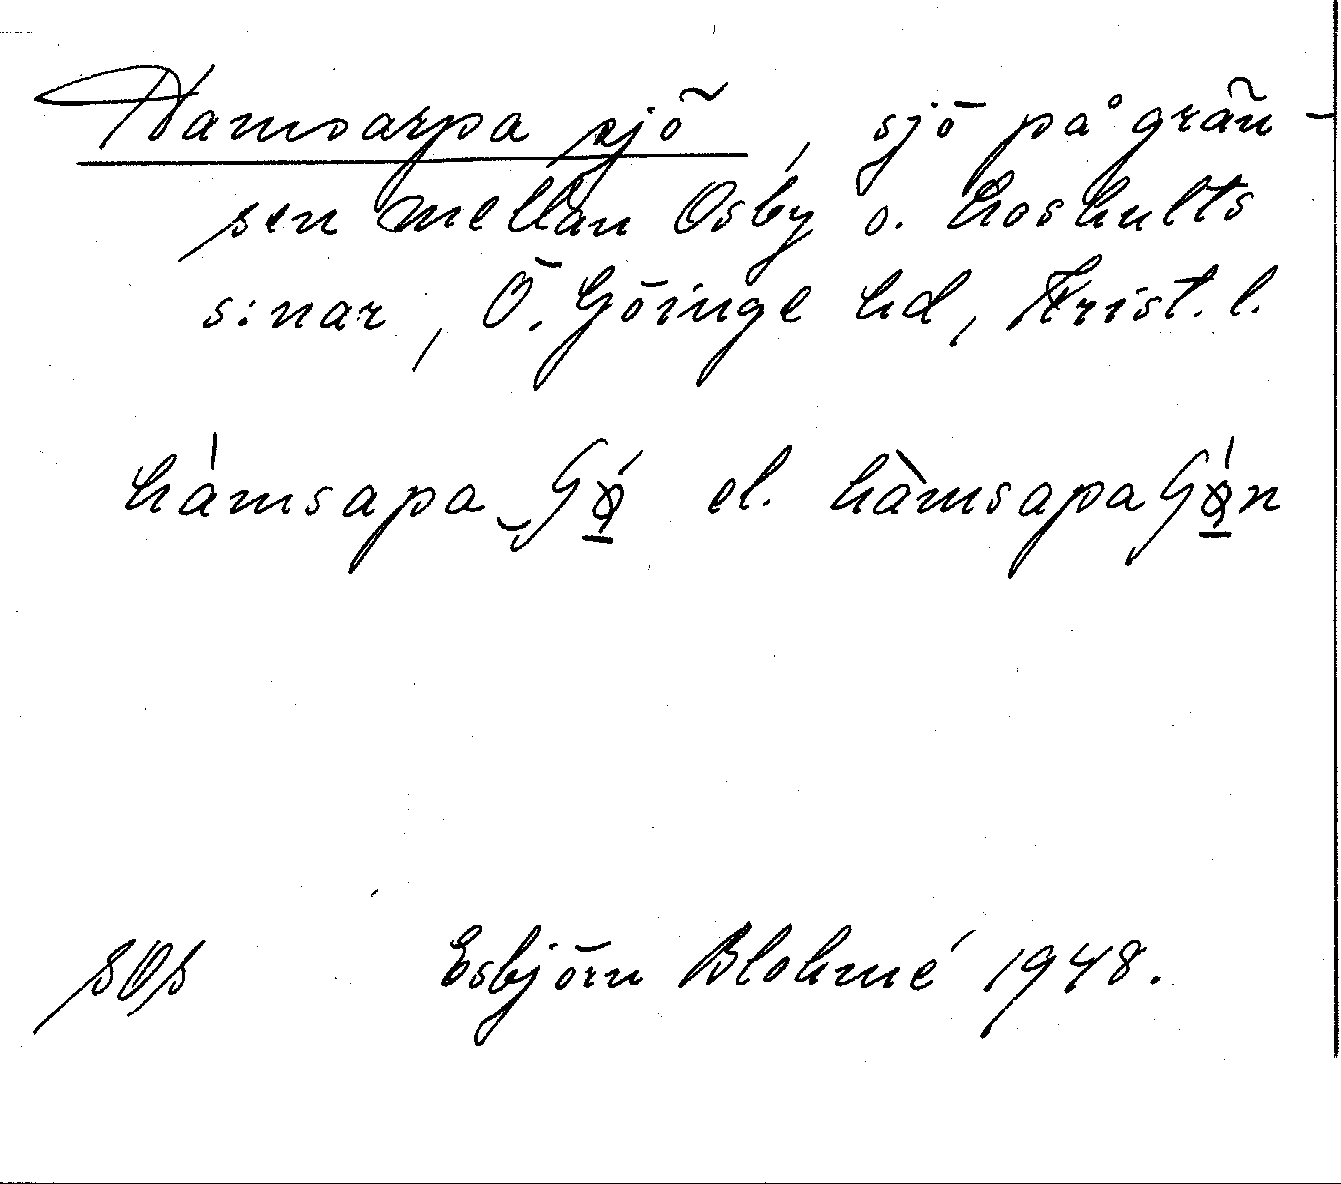 Hamsarpa sjö, sjö på grän-
sen mellan Osby o. Loshults
s:nar, Ö. Göinge hd, Krist. l.
hamsapa el. hamsapa
SOs Esbjörn Blohmé 1948.